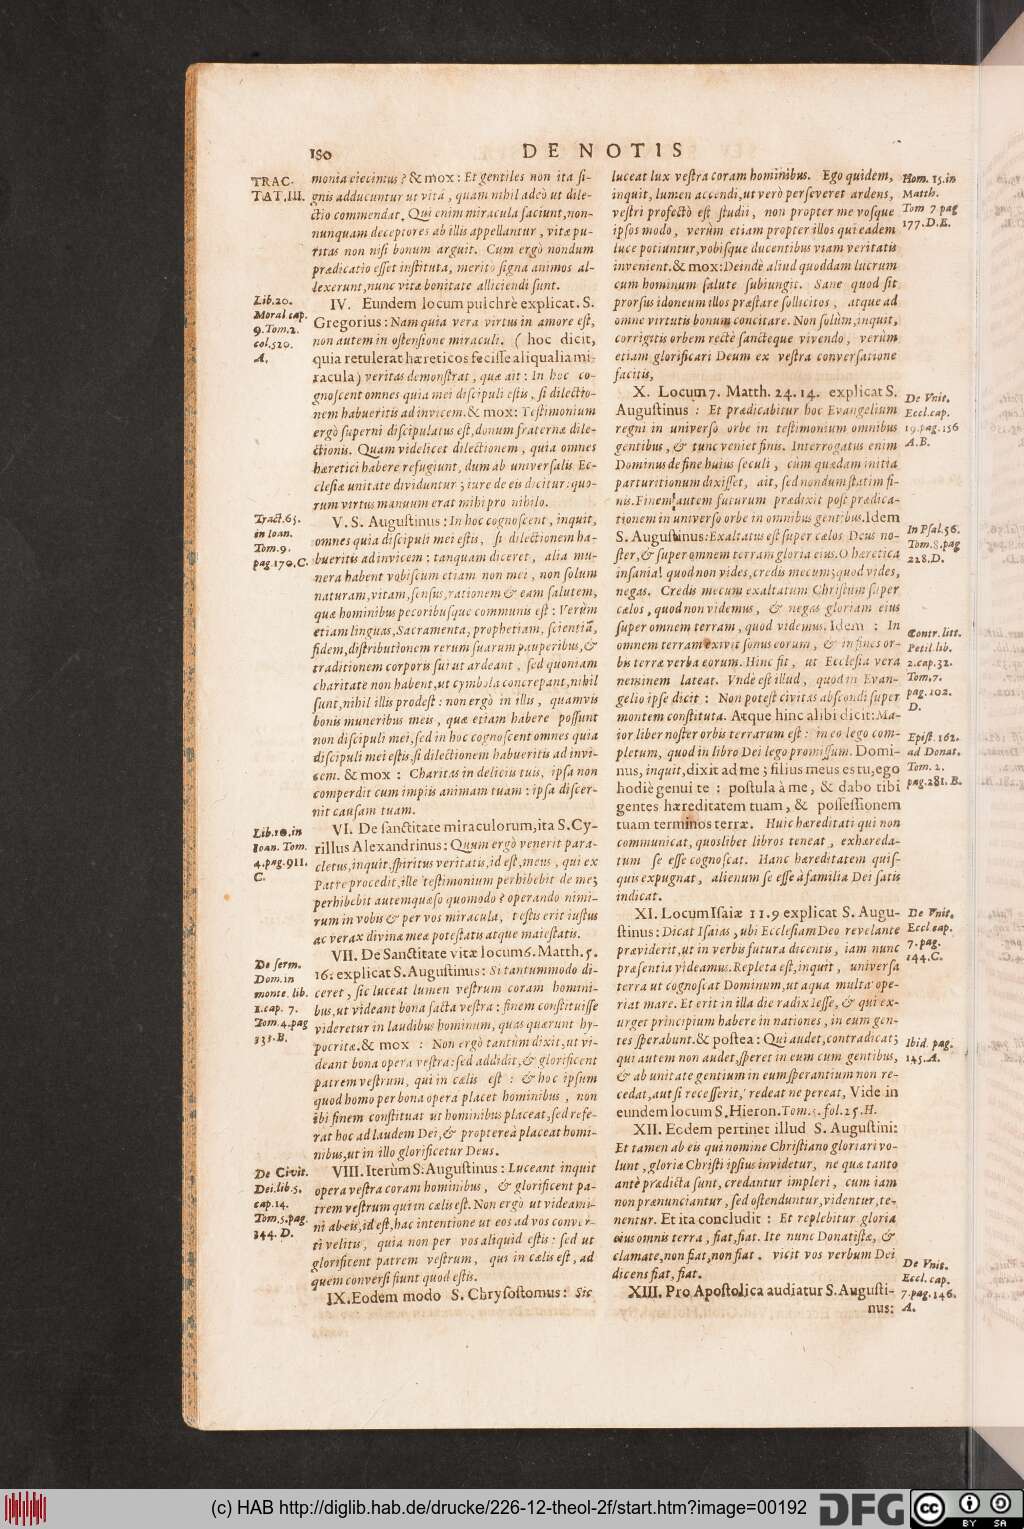 180
DE NOTIS
TRAC-
TAT, III.
monia eiecimus? & mox: Et gentiles non ita si-
gnis adducuntur ut vitâ, quam nihil adeò ut dile-
ctio commendat. Qui enim miracula faciunt, non-
nunquam deceptores ab illis appellantur, vitæ pu-
ritas non nisi bonum arguit. Cum ergò nondum
prædicatio esset instituta, meritò signa animos al-
lexerunt, nunc vitæ bonitate alliciendi sunt.
Lib. 20.
Moral. cap.
9. Tom. 2.
col. 520.
A.
IV. Eundem locum pulchrè explicat. S.
Gregorius: Nam quia vera virtus in amore est,
non autem in ostensione miraculi. (hoc dicit,
quia retulerat hæreticos fecisse aliqualia mi-
racula) veritas demonstrat, quæ ait: In hoc co-
gnoscent omnes quia mei discipuli estis, si dilectio-
nem habueritis ad invicem. & mox: Testimonium
ergò superni discipulatus est, donum fraternæ dile-
ctionis. Quam videlicet dilectionem, quia omnes
hæretici habere refugiunt, dum ab universalis Ec-
clesiæ unitate dividuntur; iure de eis dicitur: quo-
rum virtus manuum erat mihi pro nihilo.
Tract. 65.
in Ioan.
Tom. 9.
pag. 170. C.
V. S. Augustinus: In hoc cognoscent, inquit,
omnes quia discipuli mei estis, si dilectionem ha-
bueritis ad invicem: tanquam diceret, alia mu-
nera habent vobiscum etiam non mei, non solum
naturam, vitam, sensus, rationem & eam salutem,
quæ hominibus pecoribusque communis est: Verùm
etiam linguas, Sacramenta, prophetiam, scientiã,
fidem, distributionem rerum suarum pauperibus, &
traditionem corporis sui ut ardeant, sed quoniam
charitate non habent, ut cymbala concrepant, nihil
sunt, nihil illis prodest: non ergò in illis, quamvis
bonis muneribus meis, quæ etiam habere possunt
non discipuli mei, sed in hoc cognoscent omnes quia
discipuli mei estis, si dilectionem habueritis ad invi-
cem. & mox: Charitas in deliciis tuis, ipsa non
comperdit cum impiis animam tuam: ipsa discer-
nit causam tuam.
Lib. 10. in
Ioan. Tom.
4. pag. 911.
C.
VI. De sanctitate miraculorum, ita S. Cy-
rillus Alexandrinus: Quum ergò venerit para-
cletus, inquit, spiritus veritatis, id est, meus, qui ex
Patre procedit, ille testimonium perhibebit de me;
perhibebit autem quæso quomodo? operando nimi-
rum in vobis & per vos miracula, testis erit iustus
ac verax divinæ meæ potestatis atque maiestatis.
De serm.
Dom. in
monte. lib.
1. cap. 7.
Tom. 4. pag
331. B.
VII. De Sanctitate vitæ locum 6. Matth. 5.
16. explicat S. Augustinus: Si tantummodo di-
ceret, sic luceat lumen vestrum coram homini-
bus, ut videant bona facta vestra: finem constituisse
videretur in laudibus hominum, quas quærunt hy-
pocritæ. & mox: Non ergò tantùm dixit, ut vi-
deant bona opera vestra: sed addidit, & glorificent
patrem vestrum, qui in cælis est: & hoc ipsum
quod homo per bona opera placet hominibus, non
ibi finem constituat ut hominibus placeat, sed refe-
rat hoc ad laudem Dei, & propterea placeat homi-
nibus, ut in illo glorificetur Deus.
De Civit.
Dei. lib. 5.
cap. 14.
Tom. 5. pag.
344. D.
VIII. Iterùm S. Augustinus: Luceant inquit
opera vestra coram hominibus, & glorificent pa-
trem vestrum qui in cælis est. Non ergò ut videami-
ni ab eis, id est, hac intentione ut eos ad vos conver-
ti velitis, quia non per vos aliquid estis: sed ut
glorificent patrem vestrum, qui in cælis est, ad
quem conversi fiunt quod estis.
IX. Eodem modo S. Chrysostomus: Sic
luceat lux vestra coram hominibus. Ego quidem,
inquit, lumen accendi, ut verò perseveret ardens,
vestri profectò est studii, non propter me vosque
ipsos modo, verùm etiam propter illos qui eadem
luce potiuntur, vobisque ducentibus viam veritatis
invenient. & mox: Deindè aliud quoddam lucrum
cum hominum salute subiungit. Sane quod sit
prorsus idoneum illos præstare sollicitos, atque ad
omne virtutis bonum concitare. Non solùm, inquit,
corrigitis orbem rectè sancteque vivendo, verùm
etiam glorificari Deum ex vestra conversatione
facitis,
Hom. 15. in
Matth.
Tom 7. pag
177. D.E.
X. Locum 7. Matth. 24. 14. explicat S.
Augustinus: Et prædicabitur hoc Evangelium
regni in universo orbe in testimonium omnibus
gentibus, & tunc veniet finis. Interrogatus enim
Dominus de fine huius seculi, cùm quædam initia
parturitionum dixisset, ait, sed nondum statim fi-
nis. Finem autem futurum prædixit post prædica-
tionem in universo orbe in omnibus gentibus. Idem
S. Augustinus: Exaltatus est super cælos Deus no-
ster, & super omnem terram gloria eius. O hæretica
insania! quod non vides, credis mecum; quod vides,
negas. Credis mecum exaltatum Christum super
cælos, quod non videmus, & negas gloriam eius
super omnem terram, quod videmus. Idem: In
omnem terram exivit sonus eorum, & in fines or-
bis terræ verba eorum. Hinc fit, ut Ecclesia vera
neminem lateat. Vnde est illud, quod in Evan-
gelio ipse dicit: Non potest civitas abscondi super
montem constituta. Atque hinc alibi dicit: Ma-
ior liber noster orbis terrarum est: in eo lego com-
pletum, quod in libro Dei lego promissum. Domi-
nus, inquit, dixit ad me; filius meus es tu, ego
hodiè genui te: postula à me, & dabo tibi
gentes hæreditatem tuam, & possessionem
tuam terminos terræ. Huic hæreditati qui non
communicat, quoslibet libros teneat, exhæreda-
tum se esse cognoscat. Hanc hæreditatem quis-
quis expugnat, alienum se esse à familia Dei satis
indicat.
De Vnit.
Eccl. cap.
19. pag. 156
A.B.
In Psal. 56.
Tom. 8. pag
228. D.
Contr. litt.
Petil. lib.
2. cap. 32.
Tom. 7.
pag. 102.
D.
Epist. 162.
ad Donat.
Tom. 2.
pag. 281. B.
XI. Locum Isaiæ 11. 9 explicat S. Augu-
stinus: Dicat Isaias, ubi Ecclesiam Deo revelante
præviderit, ut in verbis futura dicentis, iam nunc
præsentia videamus. Repleta est, inquit, universa
terra ut cognoscat Dominum, ut aqua multa ope-
riat mare. Et erit in illa die radix Iesse, & qui ex-
urget principium habere in nationes, in eum gen-
tes sperabunt. & postea: Qui audet, contradicat;
qui autem non audet, speret in eum cum gentibus,
& ab unitate gentium in eum sperantium non re-
cedat, aut si recesserit, redeat ne pereat, Vide in
eundem locum S. Hieron. Tom. 5. fol. 25. H.
De Vnit.
Eccl. cap.
7. pag.
144. C.
Ibid. pag.
145. A.
XII. Eodem pertinet illud S. Augustini:
Et tamen ab eis qui nomine Christiano gloriari vo-
lunt, gloriæ Christi ipsius invidetur, ne quæ tanto
antè prædicta sunt, credantur impleri, cum iam
non prænunciantur, sed ostenduntur, videntur, te-
nentur. Et ita concludit: Et replebitur gloria
eius omnis terra, fiat, fiat. Ite nunc Donatistæ, &
clamate, non fiat, non fiat. vicit vos verbum Dei
dicens fiat, fiat.
XIII. Pro Apostolica audiatur S. Augusti-
nus:
De Vnit.
Eccl. cap.
7. pag. 146.
A.
(c) HAB http://diglib.hab.de/drucke/226-12-theol-2f/start.htm?image=00192
DFG
cc BY SA